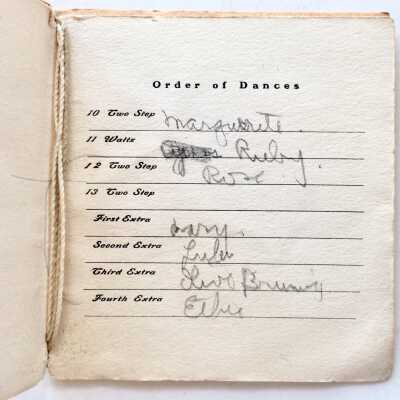 Order of Dances
10 Two Step Marguerite.
11 Waltz Ruby.
12 Two Step Rose
13 Two Step
First Extra Mary.
Second Extra Lulu
Third Extra Bruning
Fourth Extra